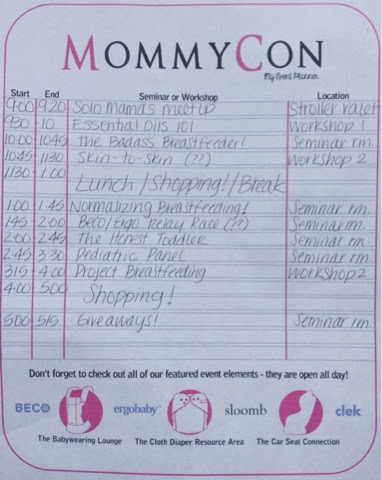 MOMMYCON
My Event Planner
Start End Seminar or Workshop Location
9:00 9:20 Solo Mamas meetup Stroller valet
930 10 Essential Oils 101 Workshop 1
10:00 1045 The Badass Breastfeeder! Seminar rm.
1045 1130 Skin-to-skin (??) Workshop 2
1130 1:00 Lunch/Shopping!/Break
1:00 1:45 Normalizing Breastfeeding! Seminar rm.
145 2:00 Beco/Ergo Relay Race (??) Seminar rm.
2:00 2:45 The Honest Toddler Seminar rm.
2:45 3:30 Pediatric Panel Seminar rm.
315 4:00 Project Breastfeeding Workshop 2
4:00 500 Shopping!
500 515 Giveaways! Seminar rm
Don't forget to check out all of our featured event elements - they are open all day!
BECO ergobaby sloomb clek
The Babywearing Lounge The Cloth Diaper Resource Area The Car Seat Connection